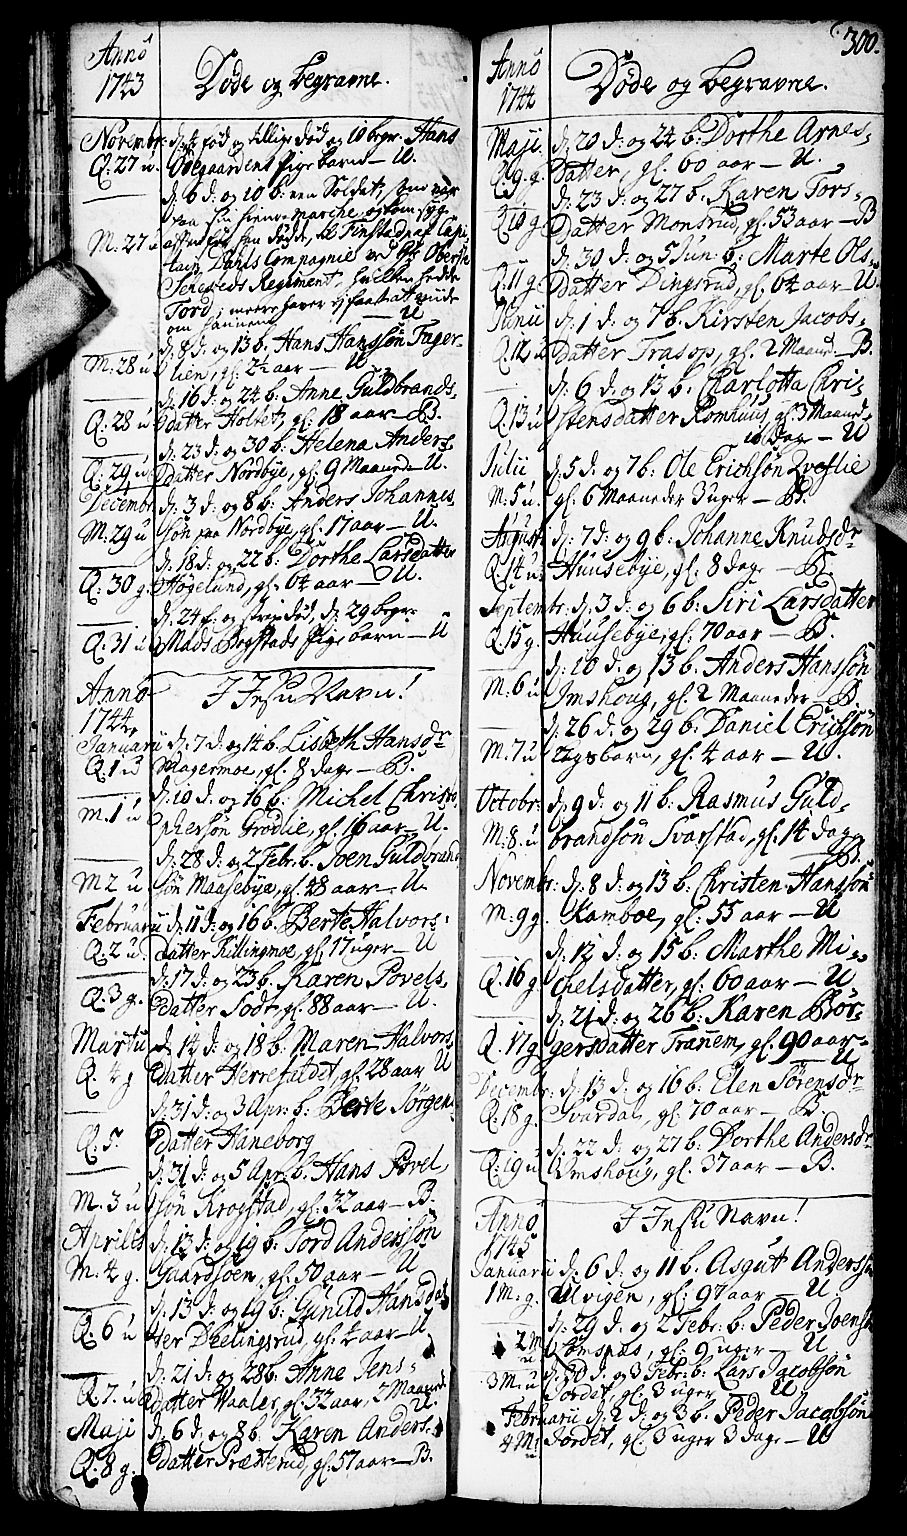 Anno
1743
Døde og begravne.
Novembr: d: 4 fød og tillige død og 10 begr. Hans
Q: 27 u. Ødegaardens pige barn – U.
d: 6 d: og 10 b: een Soldat, som var
paa sin hiem marche og kom syg
M. 27 u
Tord, meere haver vj faaet at vide
om hannem – U
d: 8 d: og 13 b. Hans Hanssøn Fager-
M: 28 u lien, gl. 2½ aar – U
d: 16 d: og 24 b: Anne Guldbrands
Q: 28 u datter Holtet, gl. 18 aar – B.
d: 23 d: og 30 b: Helena Anders-
Q: 29 u Datter Nordbye, gl. 9 Maaned – U.
Decembr: d: 3 d: og 8 b: Anders Johannes
M: 29 u søn paa Nordbye, gl. 17 aar – U.
d: 18 d: og 22 b: Dorthe Larsdatter
Q: 30 g. Høgelund, gl. 64 aar – U.
d: 24 f: og strax død, d: 29 begr:
Q: 31 u Mads Bogstads pige barn – U
Anno
1744
I Jesu Navn!
Januarii d: 7 d: og 14 b: Lisbeth Hansdr
Q: 1 u Magermoe, gl. 8 dage – B.
d: 10 d: og 16 b: Michel Christo
M. 1 u phersøn Grødlie, gl. 16 aar – U.
d: 28 d: og 2 Febr: b: Joen Guldbrand
M 2 u søn Maasebye, gl. 28 aar – U
Februarii d: 11 d: og 16 b. Berte Halvors-
Q: 2 u. datter Killingmoe, gl. 17 uger – U
d: 17 d: og 23 b: Karen Povels-
Q: 3 g. datter Sodr, gl. 88 aar – U.
Martii d: 14 d: og 18 b: Maren Halvors
Q. 4 g datter Herrefaldet, gl. 28 aar U
d: 31 d: og 3 Apr: b: Berte Jørgen
Q: 5. datter Haneborg
d: 31 d: og 5 Apr: b: Hans Povel-
M: 3 u søn Krogstad, gl. 32 aar – B.
Aprilis d: 12 d: og 19 b: Tord Anderssøn
M: 4 g. Gaardsøen, gl. 50 aar – U
d: 13 d: og 19 b: Gunild Hansdat
Q: 6 u ter Deelingsrud, gl. 4 aar – U
d: 21 d: og 28 b: Anne Jens-
Q: 7 u datter Waaler, gl. 32 aar, 2 Maaned
U.
Maji d: 6 d: og 8 b. Karen Anders-
Q: 8 g. datter Præsterud, gl. 57 aar – B.
300.
Anno
1744
Døde og begravne.
Maji. d: 20 d: og 24 b: Dorthe Arnes-
Q: 9. g. Datter, gl. 60 aar – U.
d: 23 d: og 27 b: Karen Tors-
Q 10 g Datter Monsrud, gl. 53 aar – B
d: 30 d: og 5 Jun: b: Marte Ols-
Q: 11 g Datter Dingsrud, gl. 64 aar – U
Junii d: 1 d: og 7 b. Kirsten Jacobs-
Q: 12 u Datter Trasop, gl. 2 Maan. – B.
d: 6 d: og 13 b: Charlotta Chri-
Q: 13 u stensdatter Romhuus gl 3 Maaned
16 dage – U
Julii d: 5 d: og 7 b: Ole Erichsøn
M: 5 u. gl. 6 Maaneder 3 uger – B.
Augusti d: 7 d: og 9 b: Johanne Knudsdr
Q: 14 u. Huusebye, gl. 8 dage – B.
Septembr: d: 3 d: og 6 b: Siri Larsdatter
Q: 15 g. Huusebye, gl: 70 aar – B.
d: 10 d: og 13 b: Anders Hanssøn
M: 6 u Omshoug, gl. 2 Maaneder – B
d: 26 d: og 29 b: Daniel Erichsøn
M: 7 u gl. 4 aar – U.
Octobr: d: 9 d: og 11 b: Rasmus Guld-
M: 8. u brandsøn Svarstad, gl. 14 dage
B.
Novembr: d: 8 d: og 13 b: Christen Hanssøn
M: 9 g. Kamboe, gl: 55 aar – U
d: 12 d: og 15 b: Marthe Mi-
Q: 16 g chelsdatter, gl. 60 aar – U
d: 21 d: og 26 b: Karen Bør-
Q. 17 g gersdatter Tranem, gl. 90 aar –
U
Decembr: d: 13 d: og 16 b: Elen Sørensdr
Q: 18 g. Svardal, gl. 70 aar – B.
d: 22 d: og 27 b: Dorthe Andersdr
Q: 19 u Omshoug, gl. 37 aar – B.
Anno
1745
I Jesu Navn!
Januarii d: 6 d: og 11 b: Asgut Anderssøn
1 M: g. Ulvigen, gl: 97 aar – U.
d: 29 d: og 2 Febr: b: Peder Joensøn
2 M u gl: 9 uger – U
d: 30 d: og 3 Febr: b: Lars Jacobsøn
3 M: u Jordet, gl. 3 uger U
Februarii d: 2 d: og 3 b: Peder Jacobsøn
4 M: u Jordet, gl. 3 uger 3 dage – U